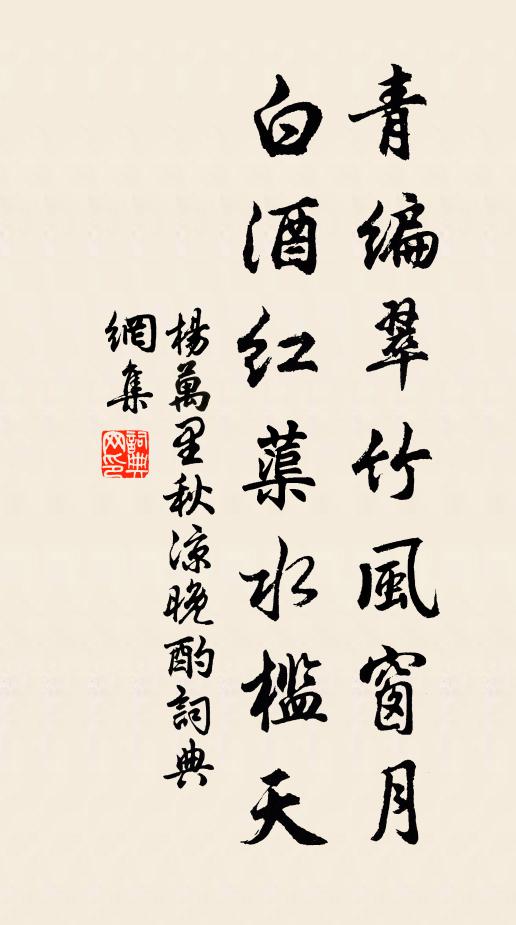 青編翠竹風窗月
白酒紅蕖水檻天
楊萬里秋涼晚酌詞典
網集
詞典網印